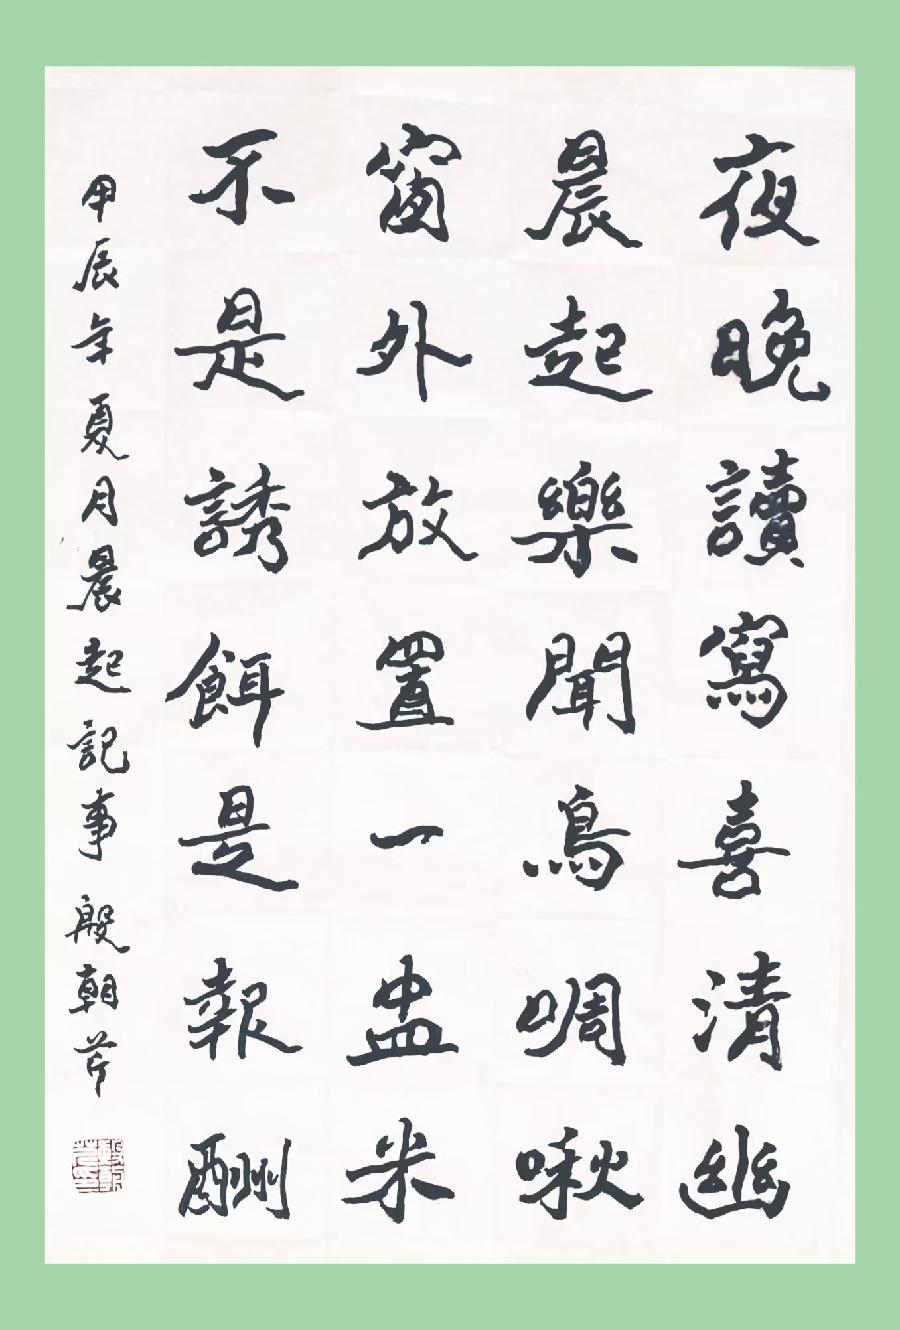 夜晚讀寫喜清幽
晨起樂聞鳥啁啾
窗外放置一盅米
不是誘餌是報酬
甲辰年夏月晨起記事 殷朝芹